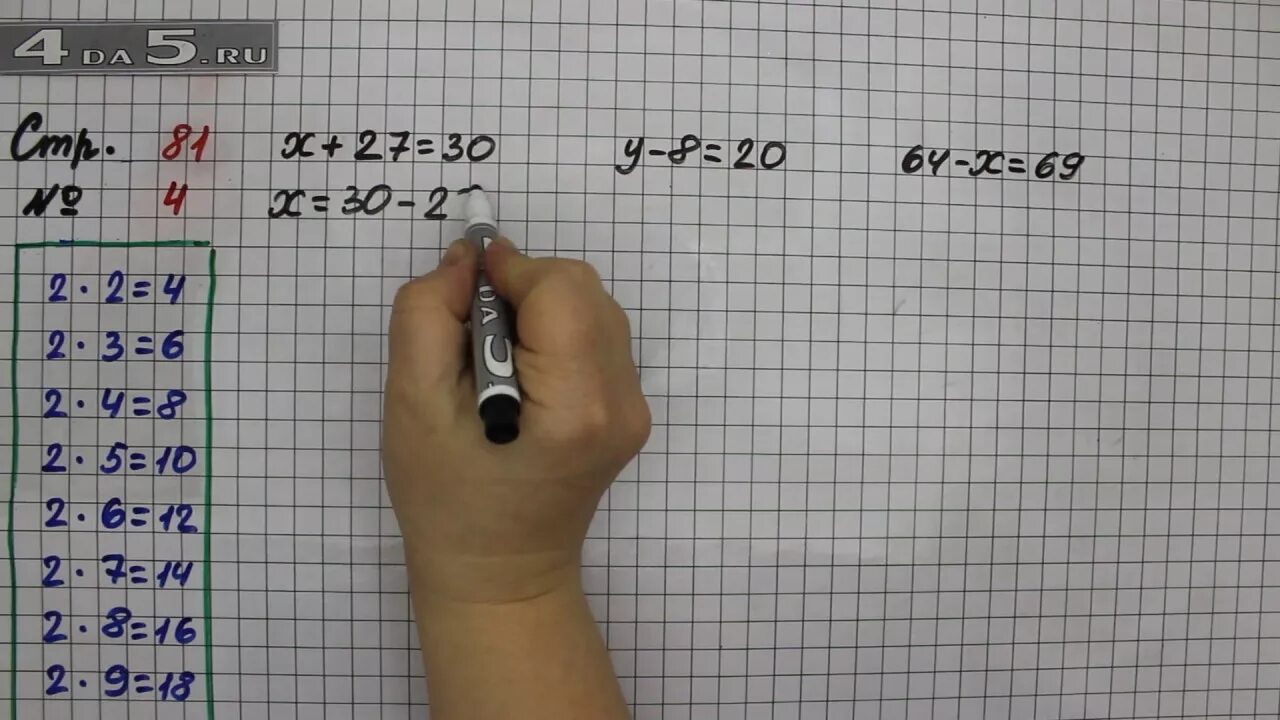 4DA5.RU
Стр. 81
№ 4
x + 27 = 30
x = 30 - 2
y - 8 = 20
64 - x = 69
2 · 2 = 4
2 · 3 = 6
2 · 4 = 8
2 · 5 = 10
2 · 6 = 12
2 · 7 = 14
2 · 8 = 16
2 · 9 = 18